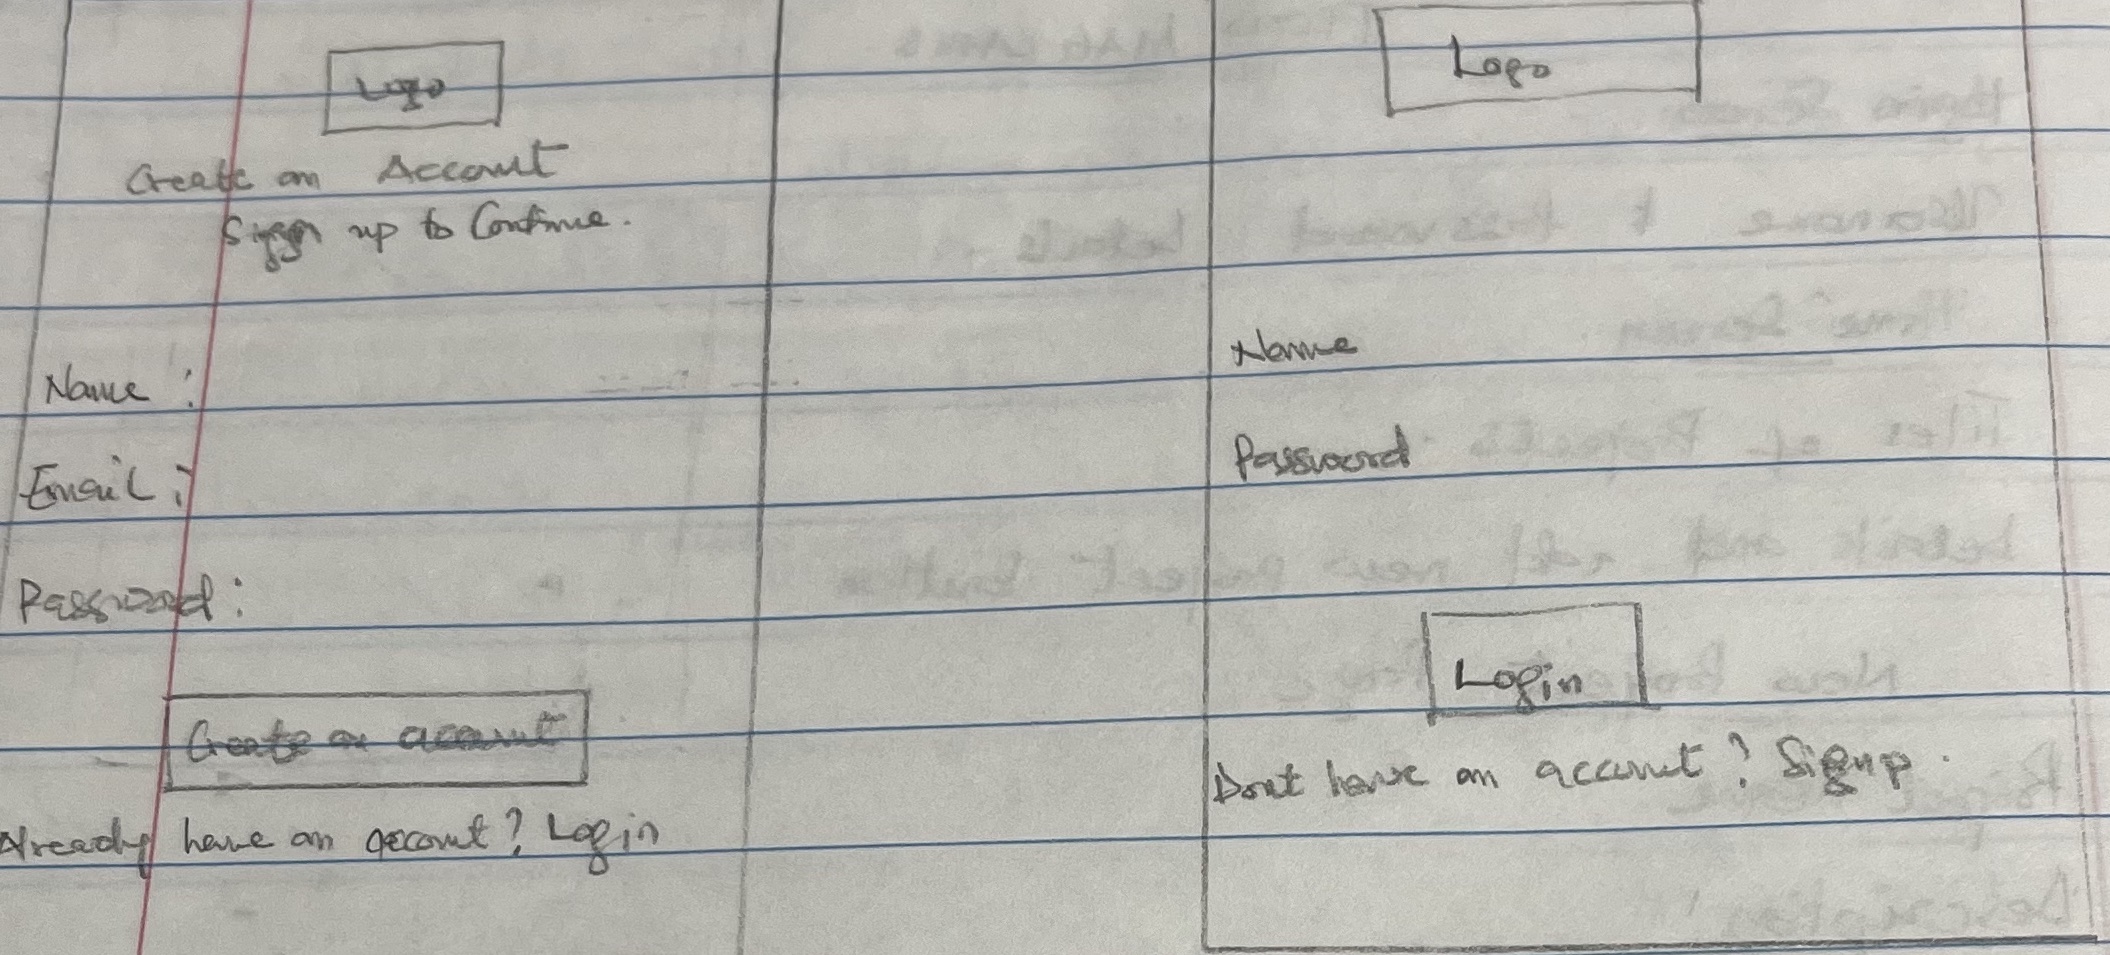 Logo
Create an Account
Sign up to Continue.
Name :
Email :
Password :
Create an account
Already have an account? Login
Logo
Name
Password
Login
Dont have an account? Signup.